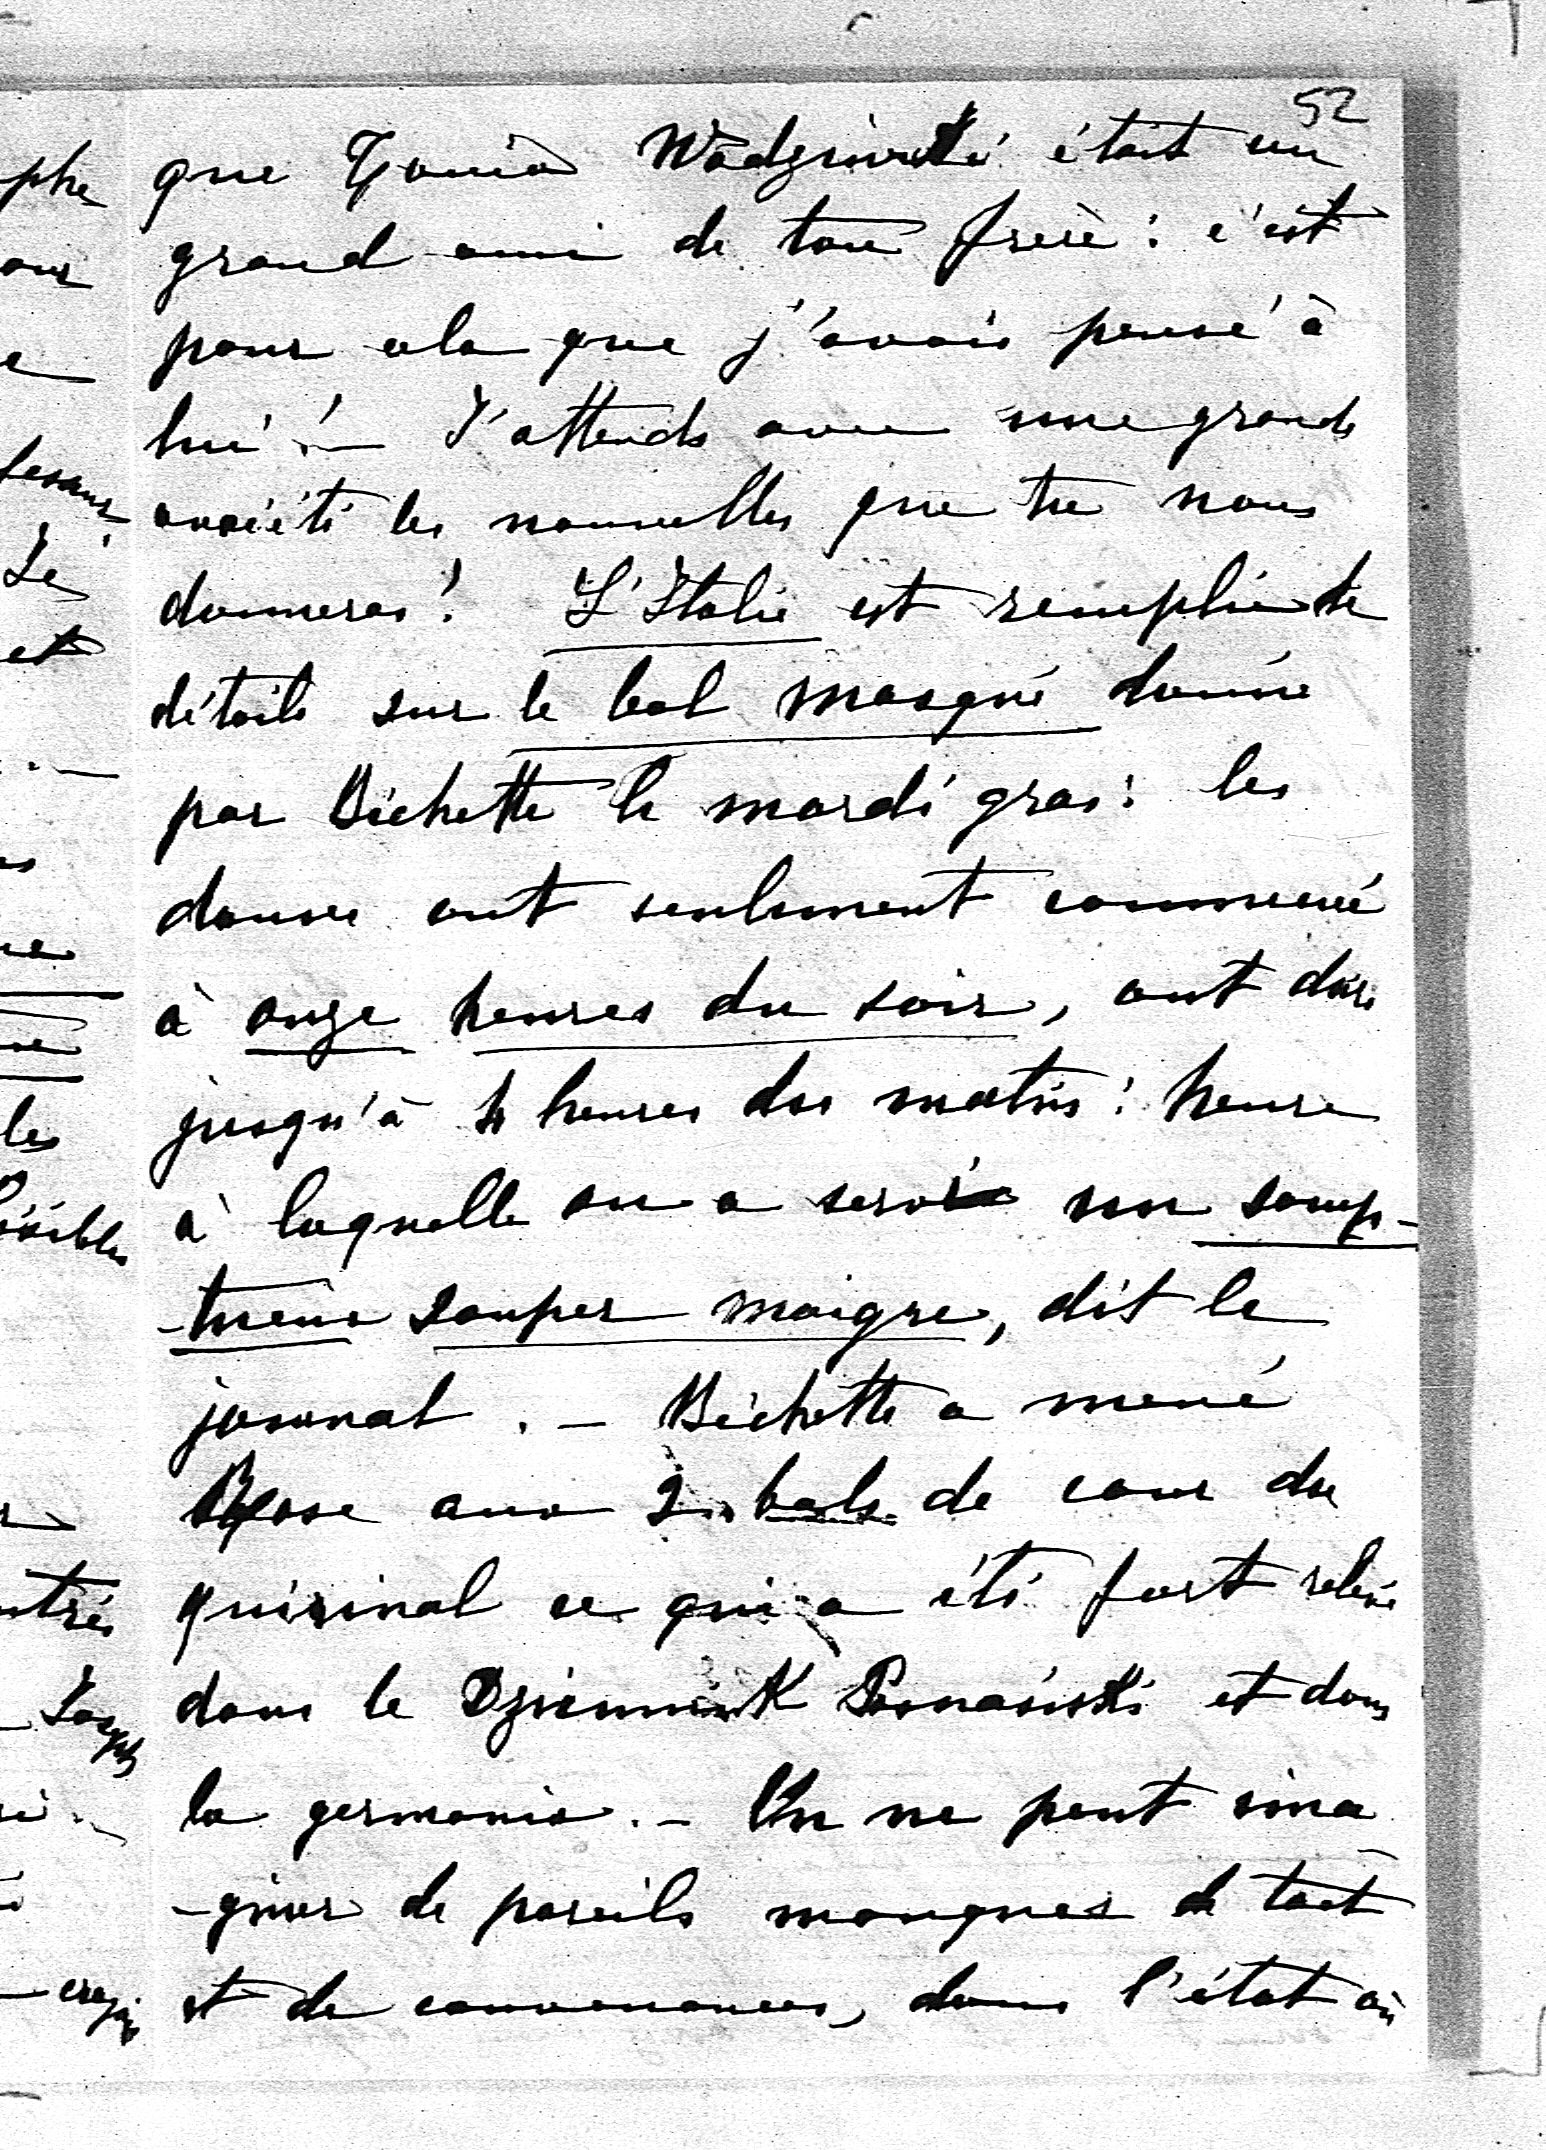 52
que Wodzinski était un
grand ami de ton frère : c'est
pour cela que j'avais pensé à
lui ! — J'attends avec une grande
anxiété les nouvelles que tu nous
donneras ! L'Italie est remplie de
détails sur le bal masqué donné
par Bichette le mardi gras : les
danses ont seulement commencé
à onze heures du soir, ont duré
jusqu'à 4 heures du matin : heure
à laquelle on a servi un somp-
-tueux souper maigre, dit le
journal. — Bichette a mené
Rose aux 2 bals de cour du
quirinal ce qui a été fort relevé
dans le Dziennik Poznański et dans
la germania. — On ne peut ima
-giner de pareils manques de tact
et de convenances, dans l'état où